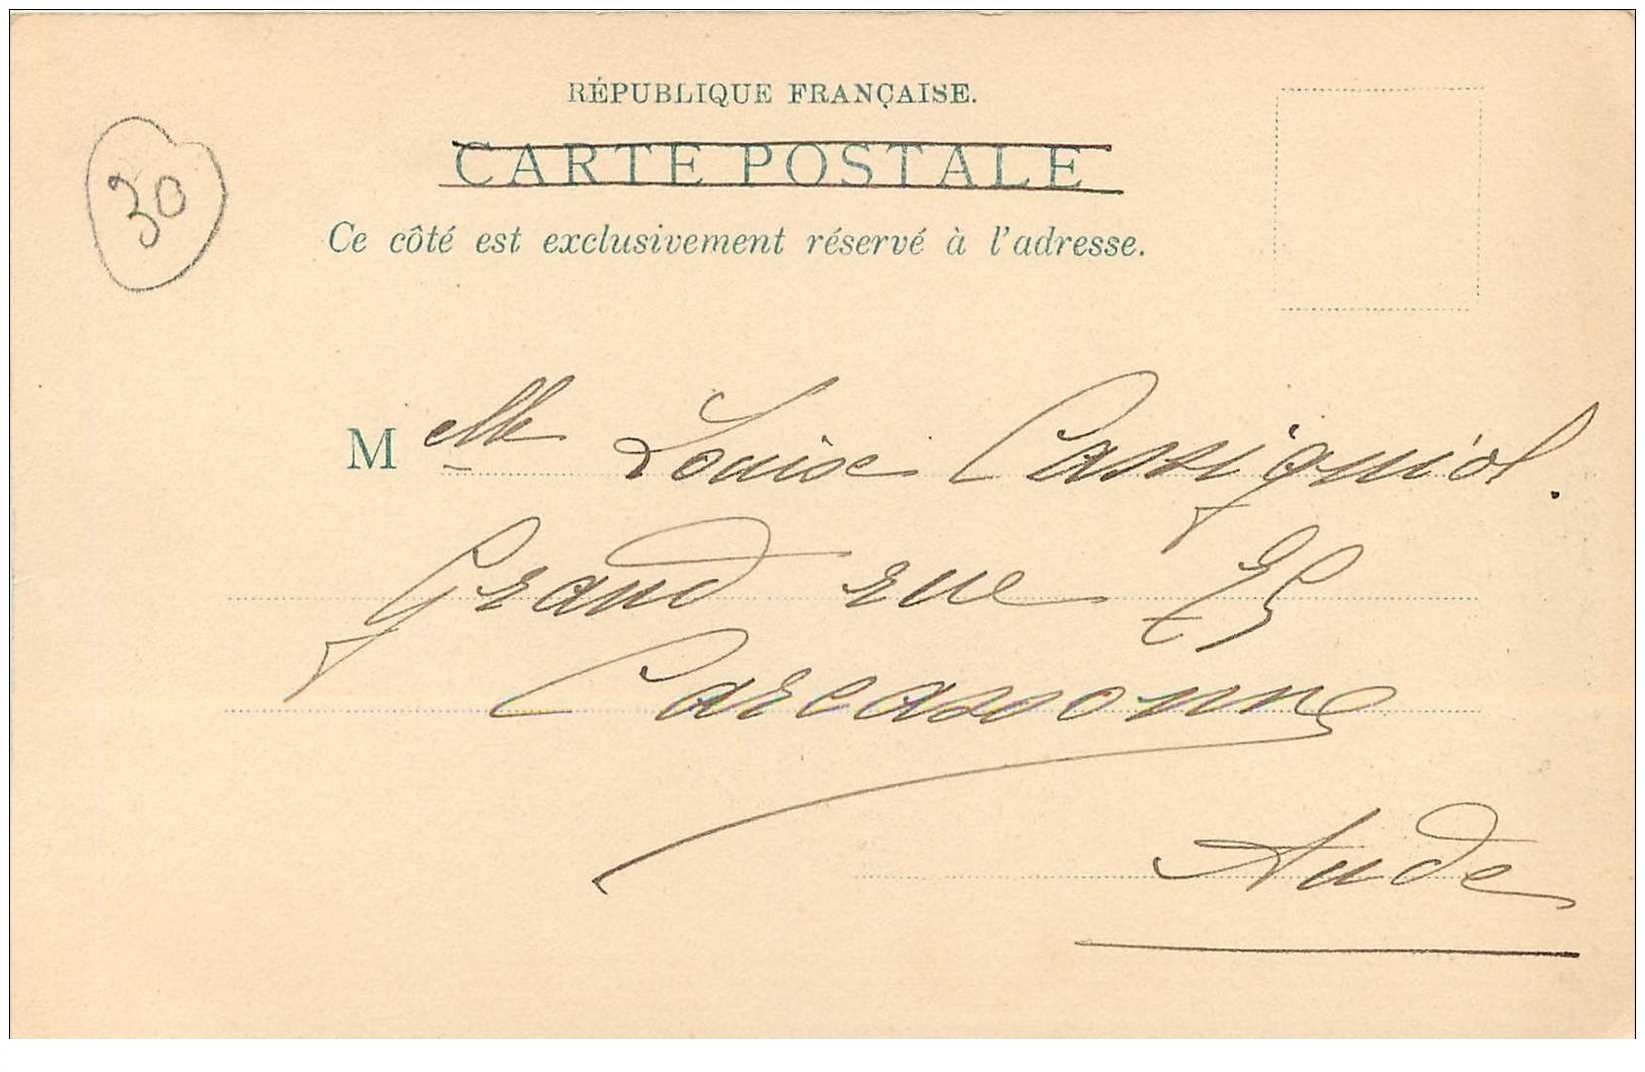 RÉPUBLIQUE FRANÇAISE.
CARTE POSTALE
30
Ce côté est exclusivement réservé à l'adresse.
Melle Louise Cassigniol.
Grand rue 75
Carcassonne
Aude